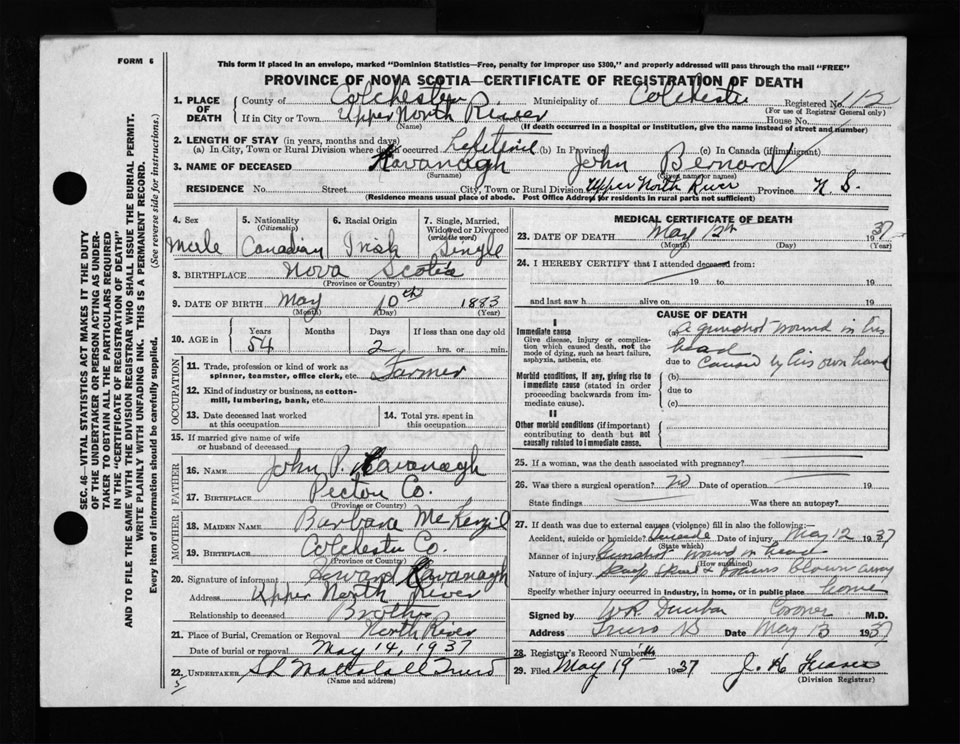 FORM 6
This form if placed in an envelope, marked "Dominion Statistics—Free, penalty for improper use $300," and properly addressed will pass through the mail "FREE"
PROVINCE OF NOVA SCOTIA—CERTIFICATE OF REGISTRATION OF DEATH
1. PLACE OF DEATH County of Colchester Municipality of Colchester Registered No. 112
(For use of Registrar General only)
If in City or Town Upper North River House No.
(Name) (If death occurred in a hospital or institution, give the name instead of street and number)
2. LENGTH OF STAY (in years, months and days)
(a) In City, Town or Rural Division where death occurred Lifetime (b) In Province (c) In Canada (if immigrant)
3. NAME OF DECEASED Kavanagh John Bernard
(Surname) (Given name or names)
RESIDENCE No. Street City, Town or Rural Division Upper North River Province N. S.
(Residence means usual place of abode. Post Office Address for residents in rural parts not sufficient)
SEC. 46—VITAL STATISTICS ACT MAKES IT THE DUTY
OF THE UNDERTAKER OR PERSON ACTING AS UNDER-
TAKER TO OBTAIN ALL THE PARTICULARS REQUIRED
IN THE "CERTIFICATE OF REGISTRATION OF DEATH"
AND TO FILE THE SAME WITH THE DIVISION REGISTRAR WHO SHALL ISSUE THE BURIAL PERMIT.
WRITE PLAINLY WITH UNFADING INK. THIS IS A PERMANENT RECORD.
Every item of information should be carefully supplied. (See reverse side for instructions.)
4. Sex 5. Nationality 6. Racial Origin 7. Single, Married,
(Citizenship) Widowed or Divorced
(write the word)
Male Canadian Irish Single
8. BIRTHPLACE Nova Scotia
(Province or Country)
9. DATE OF BIRTH May 10th 1883
(Month) (Day) (Year)
10. AGE in Years Months Days If less than one day old
54 2 hrs. or min.
OCCUPATION
11. Trade, profession or kind of work as
spinner, teamster, office clerk, etc. Farmer
12. Kind of industry or business, as cotton-
mill, lumbering, bank, etc.
13. Date deceased last worked
at this occupation
14. Total yrs. spent in
this occupation
15. If married give name of wife
or husband of deceased
FATHER
16. NAME John P. Kavanagh
17. BIRTHPLACE Pictou Co.
(Province or Country)
MOTHER
18. MAIDEN NAME Barbara McKenzie
19. BIRTHPLACE Colchester Co.
(Province or Country)
20. Signature of informant Kavanagh
Address Upper North River
Relationship to deceased Brother
21. Place of Burial, Cremation or Removal North River
Date of burial or removal May 14, 1937
22. UNDERTAKER Truro
(Name and address)
5
MEDICAL CERTIFICATE OF DEATH
23. DATE OF DEATH May 12th 1937
(Month) (Day) (Year)
24. I HEREBY CERTIFY that I attended deceased from:
19 to 19
and last saw h alive on 19
CAUSE OF DEATH
I
Immediate cause
Give disease, injury or complica-
tion which caused death, not the
mode of dying, such as heart failure,
asphyxia, asthenia, etc
(a) a gunshot wound in his
head
due to Caused by his own hand
Morbid conditions, if any, giving rise to
immediate cause (stated in order
proceeding backwards from im-
mediate cause).
(b)
due to
(c)
II
Other morbid conditions (if important)
contributing to death but not
causally related to immediate cause.
25. If a woman, was the death associated with pregnancy?
26. Was there a surgical operation? no Date of operation 19
State findings Was there an autopsy?
27. If death was due to external causes (violence) fill in also the following:-
Accident, suicide or homicide? Suicide Date of injury May 12 1937
(State which)
Manner of injury Gunshot wound in head
(How sustained)
Nature of injury Skull & brains blown away
Specify whether injury occurred in industry, in home, or in public place home
Signed by W.R. Dunbar Coroner M.D.
Address Truro NS Date May 13 1937
28. Registrar's Record Number
29. Filed May 19th 1937 J. H.
(Division Registrar)